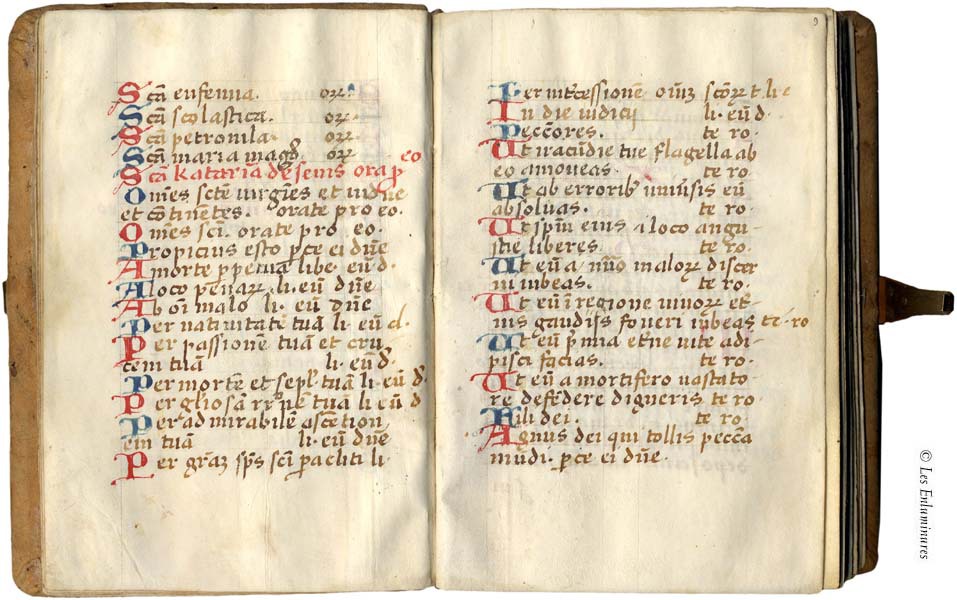 Scā eufemia. or̄.
Scā scolastica. or̄.
Scā petronila. or̄.
Scā maria magd̄. or̄.
Scā Katarīa de senis ora p̄ eo
Omēs scte uirgines et uidue
et cōtinētes. orate pro eo.
Omēs sci. orate pro eo.
Propicius esto pce ei dn̄e
A morte ppetua libe. eū d.
A loco penarꝝ. li. eū dn̄e
Ab oi malo li. eū dn̄e
Per natiuitatē tuā li. eū d.
Per passionē tuam et cru
cem tuā li. eū d.
Per mortē et sepl. tuā li. eū d.
Per gliosā rr̄ne tuā li. eū d
Per admirabilē ascētion
em tuā li. eū dn̄e
Per graꝫ sps sci pacliti li.
9
Per int̄cessionē oīuꝫ sctorꝝ t. li.e
In die iudicij li. eū d.
Peccōres. te ro.
Ut iracūdie tue flagella ab
eo amoueas. te ro.
Ut ab erroribꝰ uniūsis eū
absoluas. te ro.
Ut spm eius a loco angu
stie liberes. te ro.
Ut eū a nūo malorꝝ discer
ni iubeas. te ro.
Ut eū ī regione uiuorꝝ et
nis gaudijs foueri iubeas te ro
Ut eū pmia etne uite adi
pisci facias. te ro.
Ut eū a mortifero uastato
re defēdere digneris te ro.
Fili dei. te ro.
Agnus dei qui tollis pecca
mudi. pce ei dūe.
© Les Enluminures